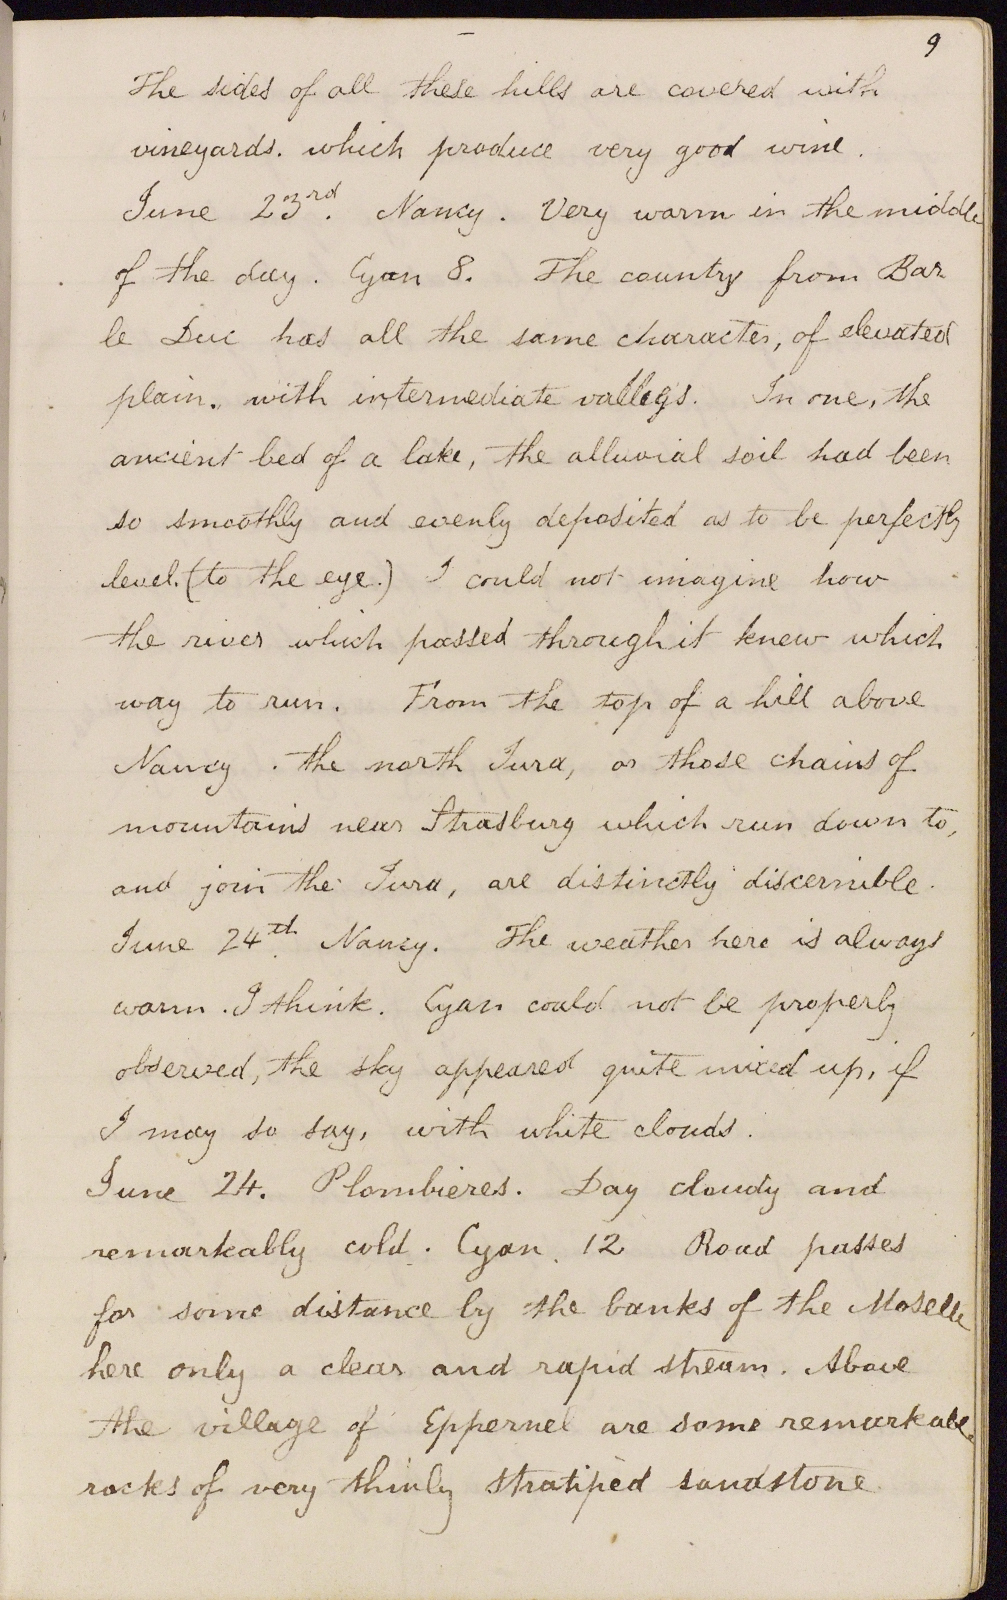 9
The sides of all these hills are covered with
vineyards. which produce very good wine.
June 23rd. Nancy. Very warm in the middle
of the day. Cyan 8. The country from Bar
le Duc has all the same character, of elevated
plain. with intermediate valleys. In one, the
ancient bed of a lake, the alluvial soil had been
so smoothly and evenly deposited as to be perfectly
level. (to the eye.) I could not imagine how
the river which passed through it knew which
way to run. From the top of a hill above
Nancy. the north Jura, or those chains of
mountains near Strasburg which run down to,
and join the Jura, are distinctly discernible.
June 24th. Nancy. The weather here is always
warm. I think. Cyan could not be properly
observed, the sky appeared quite mixed up, if
I may so say, with white clouds.
June 24. Plombieres. Day cloudy and
remarkably cold. Cyan. 12 Road passes
for some distance by the banks of the Moselle
here only a clear and rapid stream. Above
the village of Eppernel are some remarkable
rocks of very thinly stratified sandstone